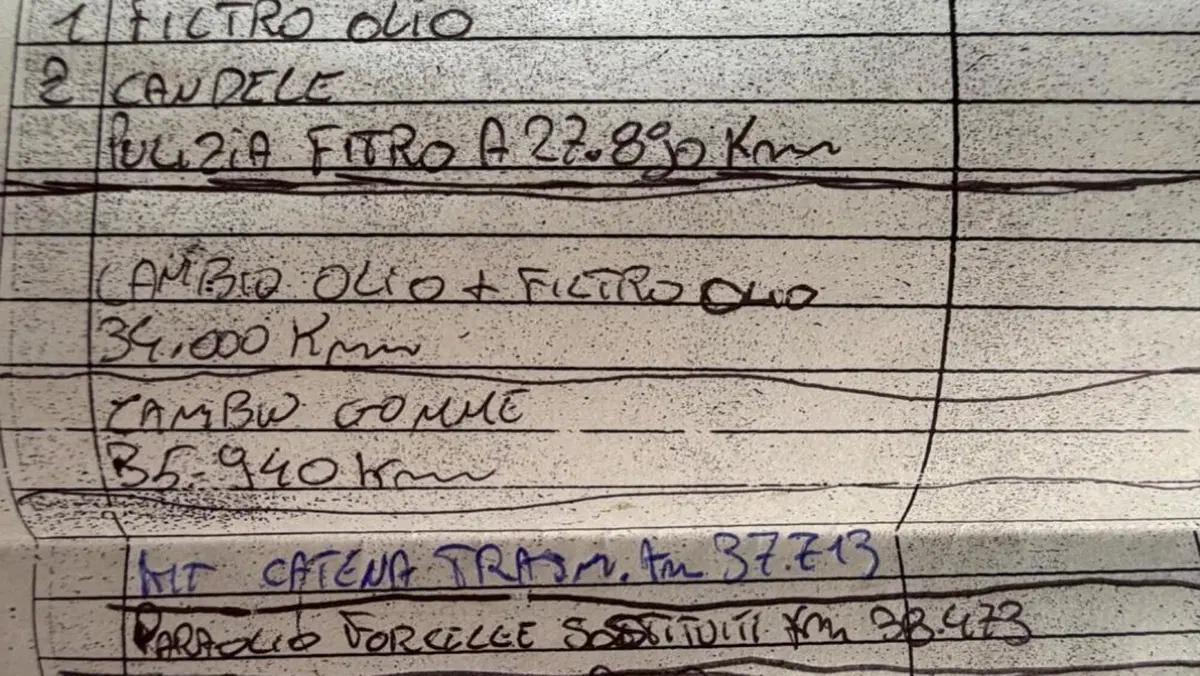 1 FILTRO OLIO
2 CANDELE
PULIZIA FITRO A 27.890 Km
CAMBIO OLIO + FILTRO OLIO
34.000 Km
CAMBIO GOMME
35.940 Km
KIT CATENA TRASM. Km 37.713
PARAOLIO FORCELLE SOSTITUITI Km 38.473